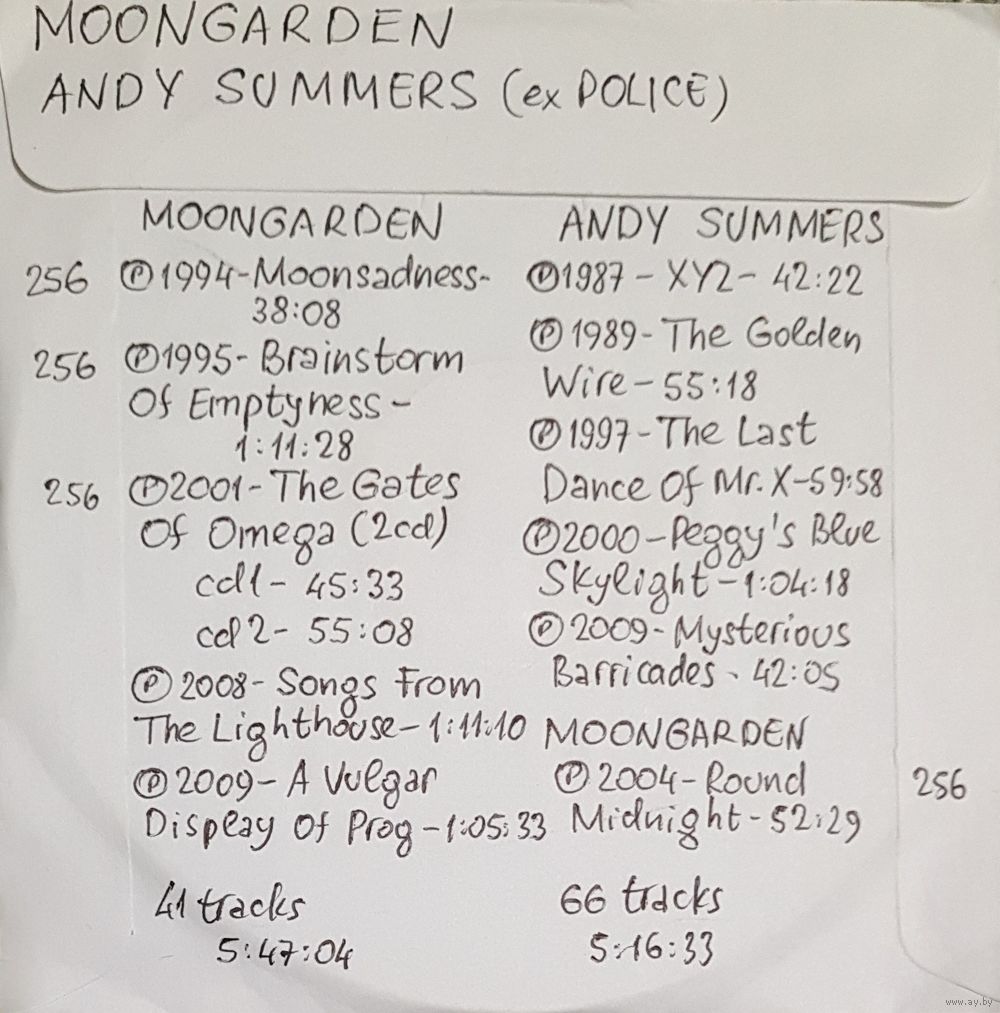 MOONGARDEN
ANDY SUMMERS (ex POLICE)
MOONGARDEN
256 Ⓟ1994-Moonsadness-
38:08
256 Ⓟ1995-Brainstorm
Of Emptyness-
1:11:28
256 Ⓟ2001-The Gates
Of Omega (2cd)
cd1- 45:33
cd2- 55:08
Ⓟ2008-Songs From
The Lighthouse-1:11:10
Ⓟ2009-A Vulgar
Display Of Prog-1:05:33
41 tracks
5:47:04
ANDY SUMMERS
Ⓟ1987-XYZ-42:22
Ⓟ1989-The Golden
Wire-55:18
Ⓟ1997-The Last
Dance Of Mr.X-59:58
Ⓟ2000-Peggy's Blue
Skylight-1:04:18
Ⓟ2009-Mysterious
Barricades-42:05
MOONGARDEN
Ⓟ2004-Round 256
Midnight-52:29
66 tracks
5:16:33
www.ay.by